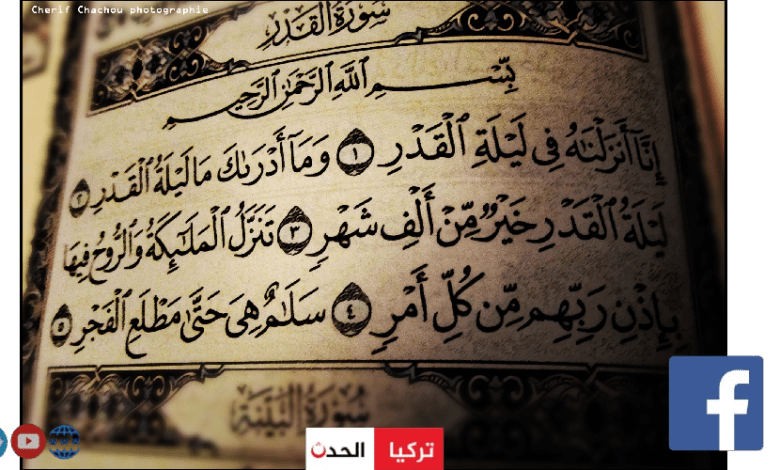 Cherif Chachou photographie
سُورَةُ الْقَدْرِ
بِسْمِ اللَّهِ الرَّحْمَٰنِ الرَّحِيمِ
إِنَّآ أَنزَلْنَٰهُ فِى لَيْلَةِ ٱلْقَدْرِ ١ وَمَآ أَدْرَىٰكَ مَا لَيْلَةُ ٱلْقَدْرِ ٢
لَيْلَةُ ٱلْقَدْرِ خَيْرٌ مِّنْ أَلْفِ شَهْرٍ ٣ تَنَزَّلُ ٱلْمَلَٰٓئِكَةُ وَٱلرُّوحُ فِيهَا
بِإِذْنِ رَبِّهِم مِّن كُلِّ أَمْرٍ ٤ سَلَٰمٌ هِىَ حَتَّىٰ مَطْلَعِ ٱلْفَجْرِ ٥
سُورَةُ الْبَيِّنَةِ
تركيا الحدث
f